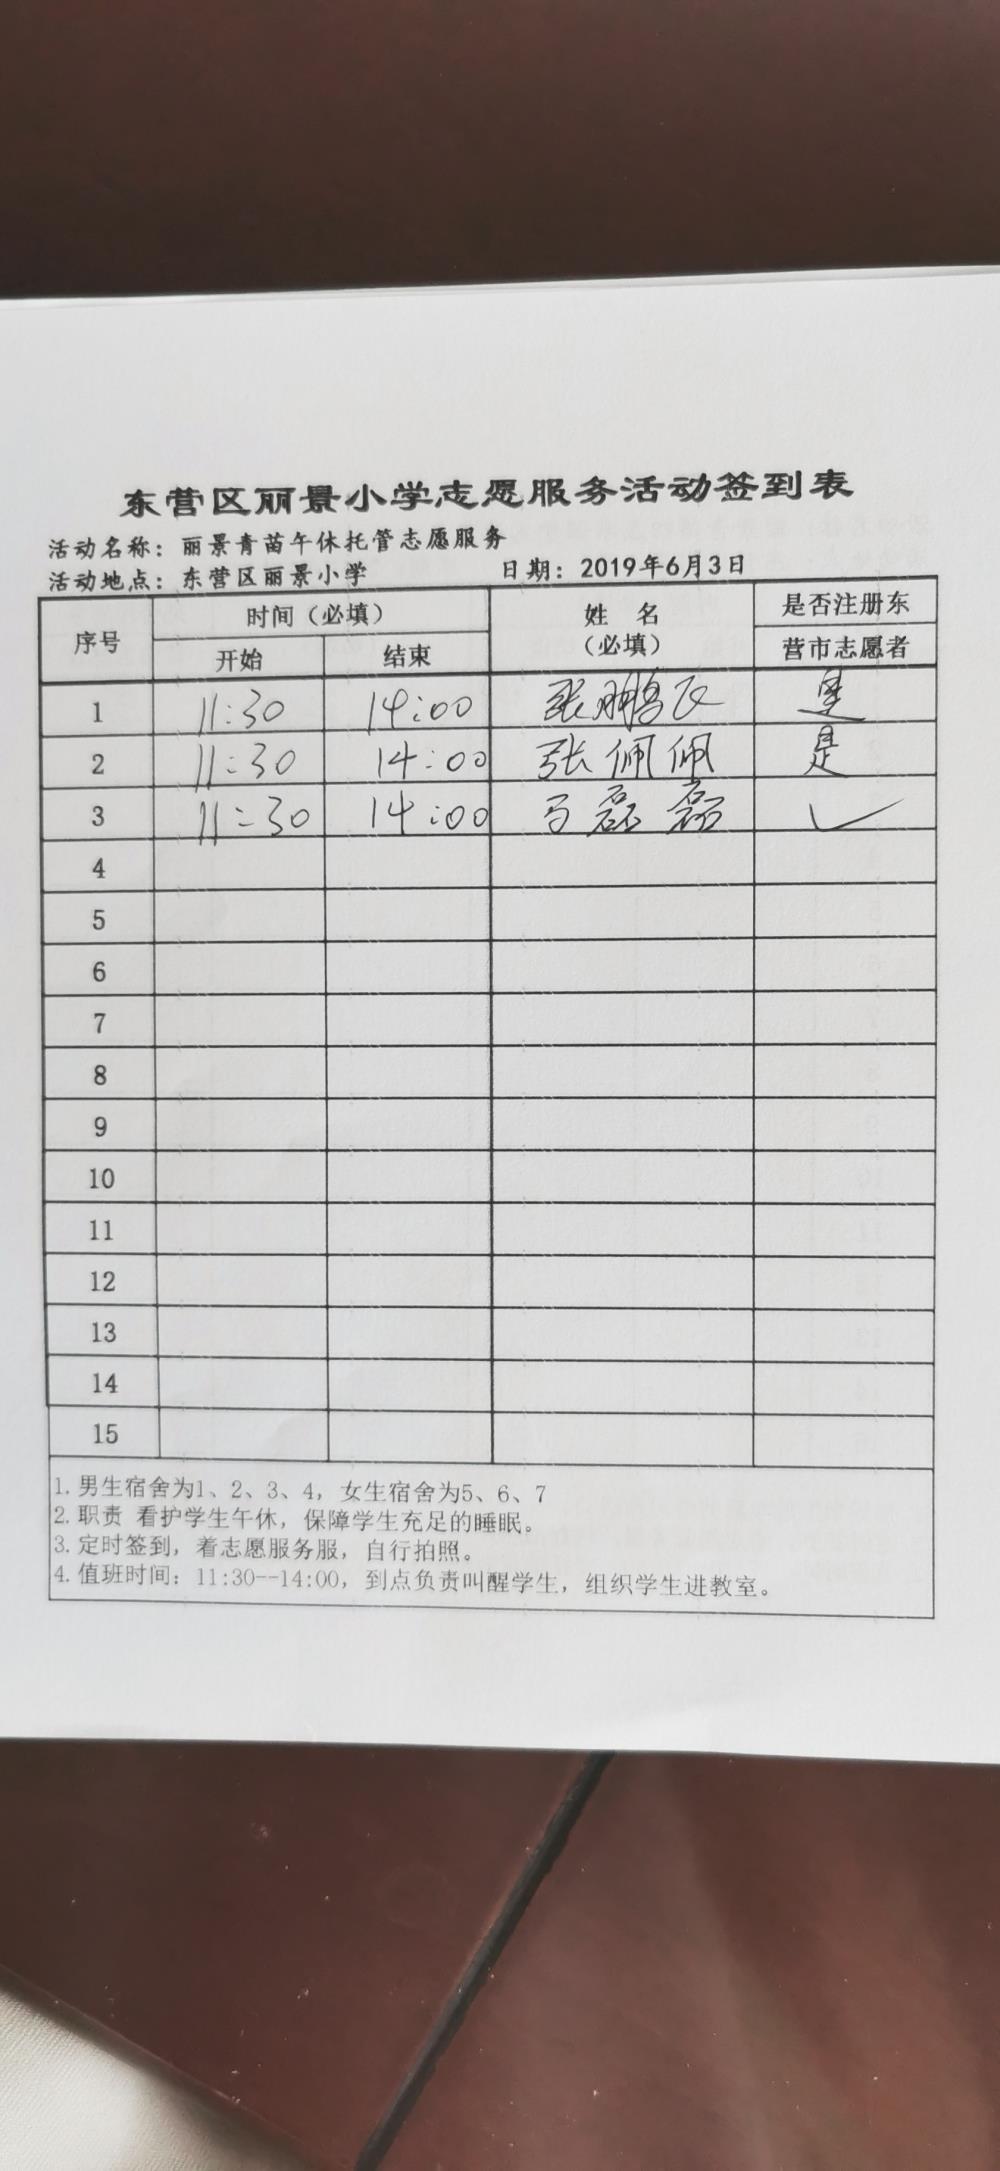 东营区丽景小学志愿服务活动签到表
活动名称：丽景青苗午休托管志愿服务
活动地点：东营区丽景小学 日期：2019年6月3日
序号 时间（必填） 姓 名 是否注册东
开始 结束 （必填） 营市志愿者
1 11:30 14:00 张鹏飞 是
2 11:30 14:00 张佩佩 是
3 11:30 14:00 马磊磊 ✓
4
5
6
7
8
9
10
11
12
13
14
15
1. 男生宿舍为1、2、3、4，女生宿舍为5、6、7
2. 职责 看护学生午休，保障学生充足的睡眠。
3. 定时签到，着志愿服务服，自行拍照。
4. 值班时间：11:30--14:00，到点负责叫醒学生，组织学生进教室。